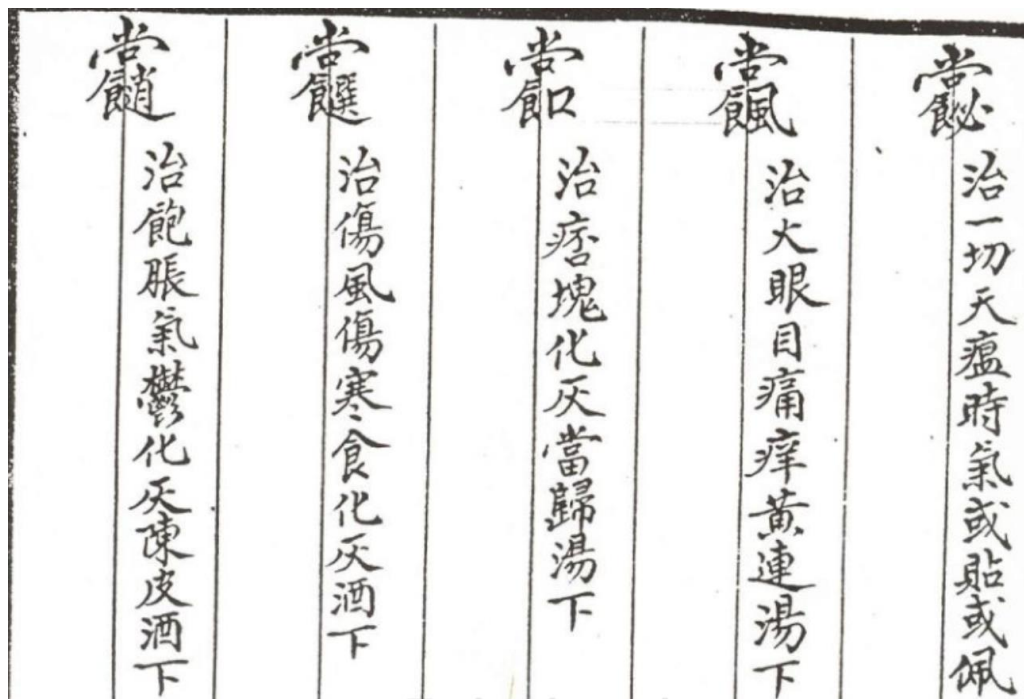 治一切天瘟時氣或貼或佩
治火眼目痛痒黃連湯下
治痞塊化灰當歸湯下
治傷風傷寒食化灰酒下
治飽脹氣鬱化灰陳皮酒下